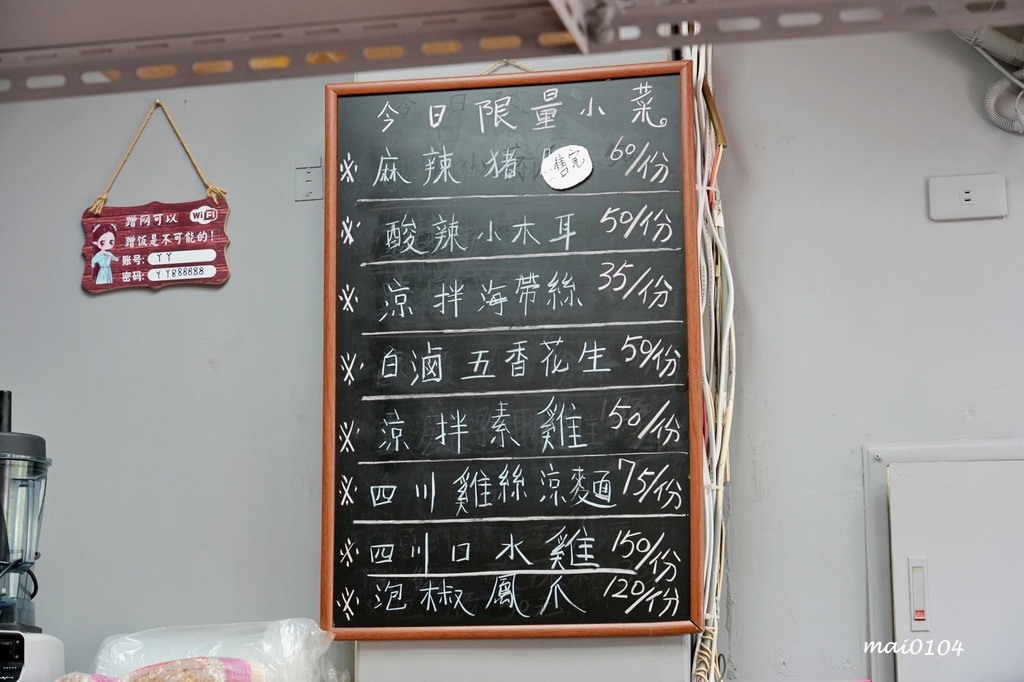 今日限量小菜。
※麻辣豬 售完 60/份
※酸辣小木耳 50/份
※涼拌海帶絲 35/份
※白滷五香花生 50/份
※涼拌素雞 50/份
※四川雞絲涼麵 75/份
※四川口水雞 150/份
※泡椒鳳爪 120/份
蹭网可以 WiFi
蹭饭是不可能的!
账号: YY
密码: YY888888
mai0104